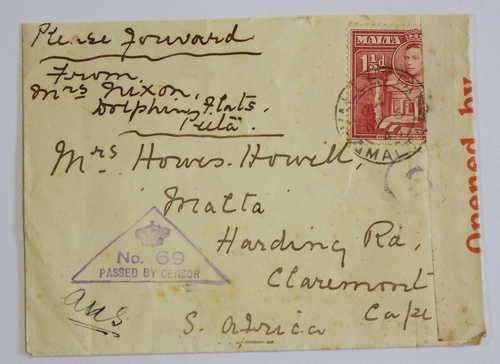 Please forward
From
Mrs Nixon,
Dolphin Flats,
MALTA
1½d
Mrs Howis-Howill,
Malta
Harding Rd,
Claremont
Cape
S. Africa
No. 69
PASSED BY CENSOR
ans
MAL
Opened by